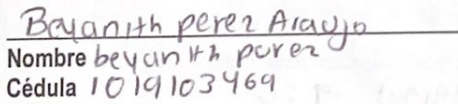 Beyanith perez Araujo
Nombre beyanith perez
Cédula 1019103469